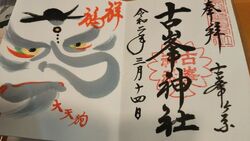 奉拝
古峯ヶ原
古峯神社
令和二年三月十四日
福祥
大天狗